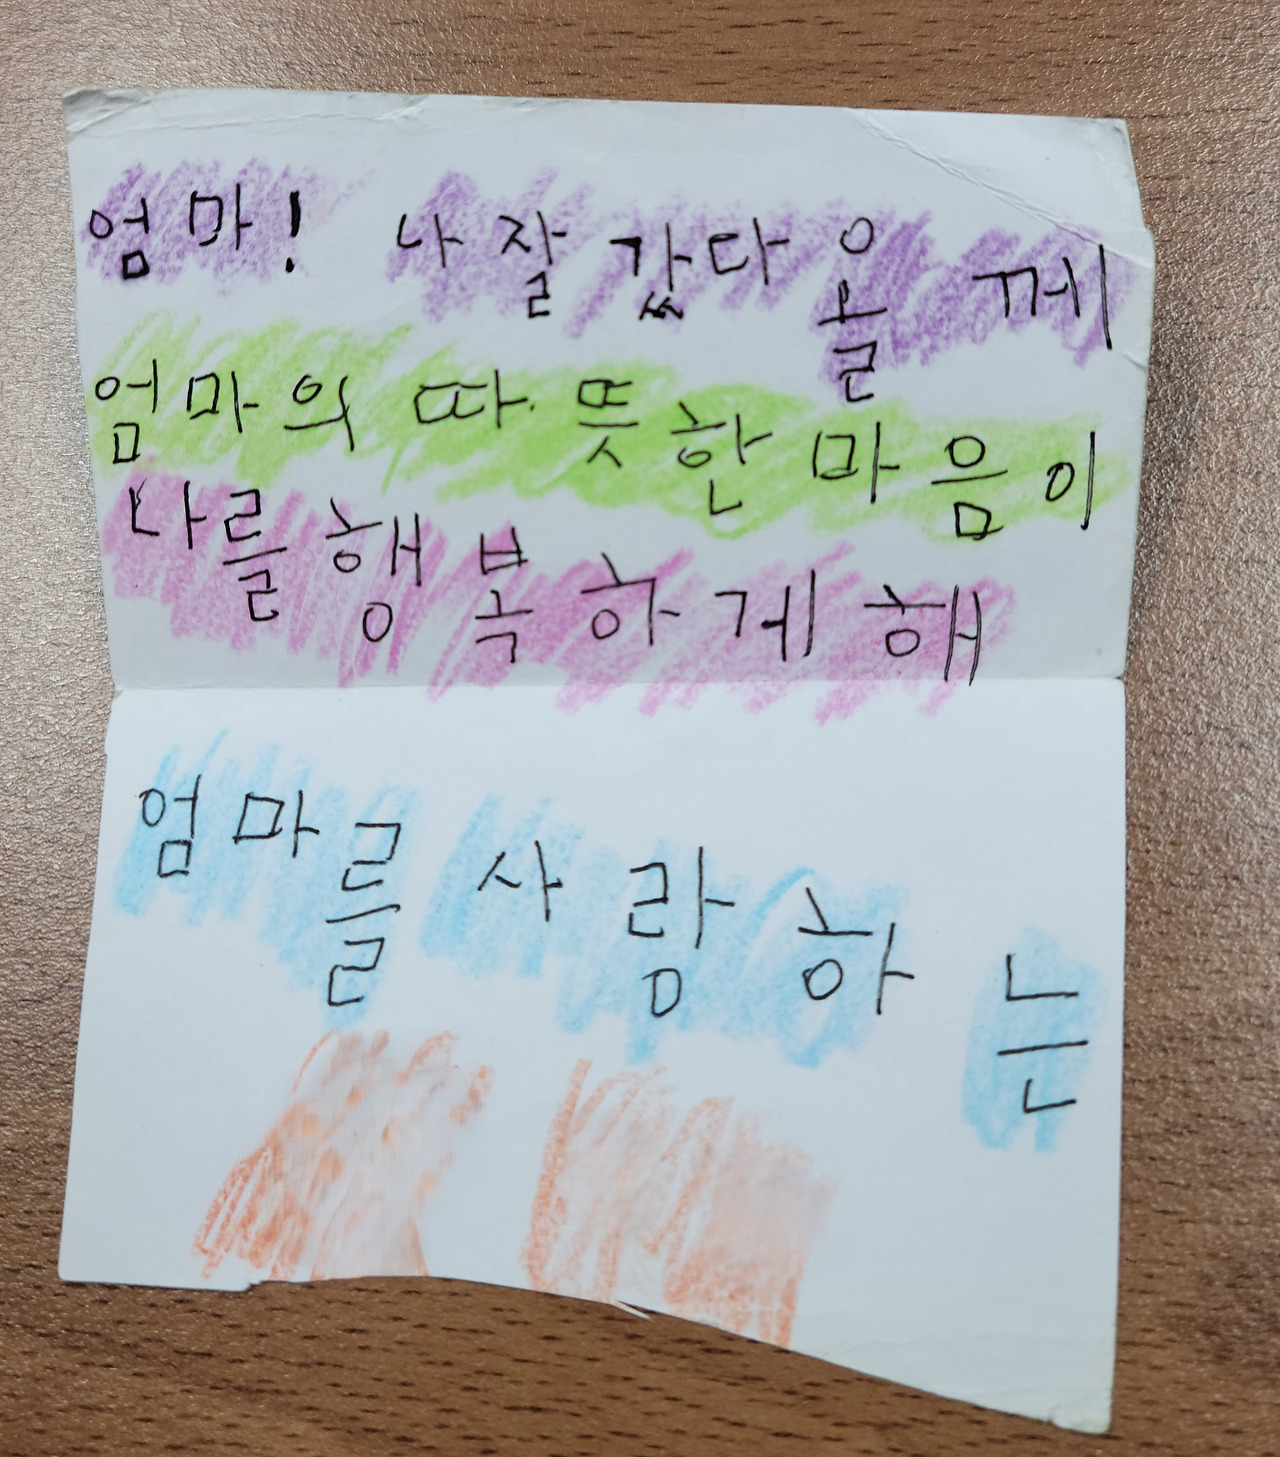 엄마! 나 잘 갔다 올께
엄마의 따뜻한 마음이
나를 행복하게 해
엄마를 사랑하는